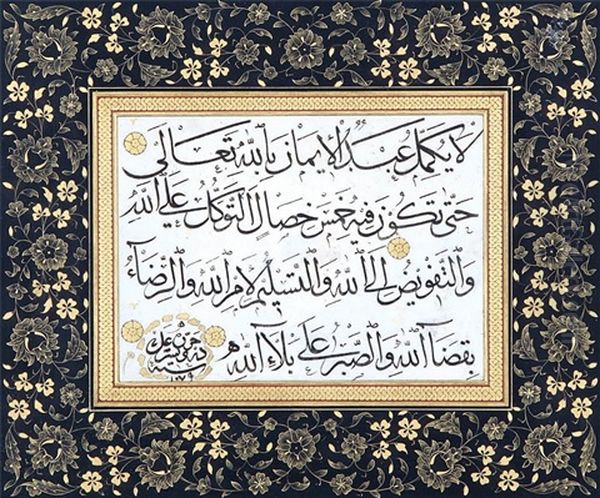 لَا يَكْمُلُ عَبْدٌ الْإِيمَانَ بِاللَّهِ تَعَالَى
حَتَّى تَكُونَ فِيهِ خَمْسُ خِصَالٍ التَّوَكُّلُ عَلَى اللَّهِ
وَالتَّفْوِيضُ إِلَى اللَّهِ وَالتَّسْلِيمُ لِأَمْرِ اللَّهِ وَالرِّضَاءُ
بِقَضَاءِ اللَّهِ وَالصَّبْرُ عَلَى بَلَاءِ اللَّهِ
سنة